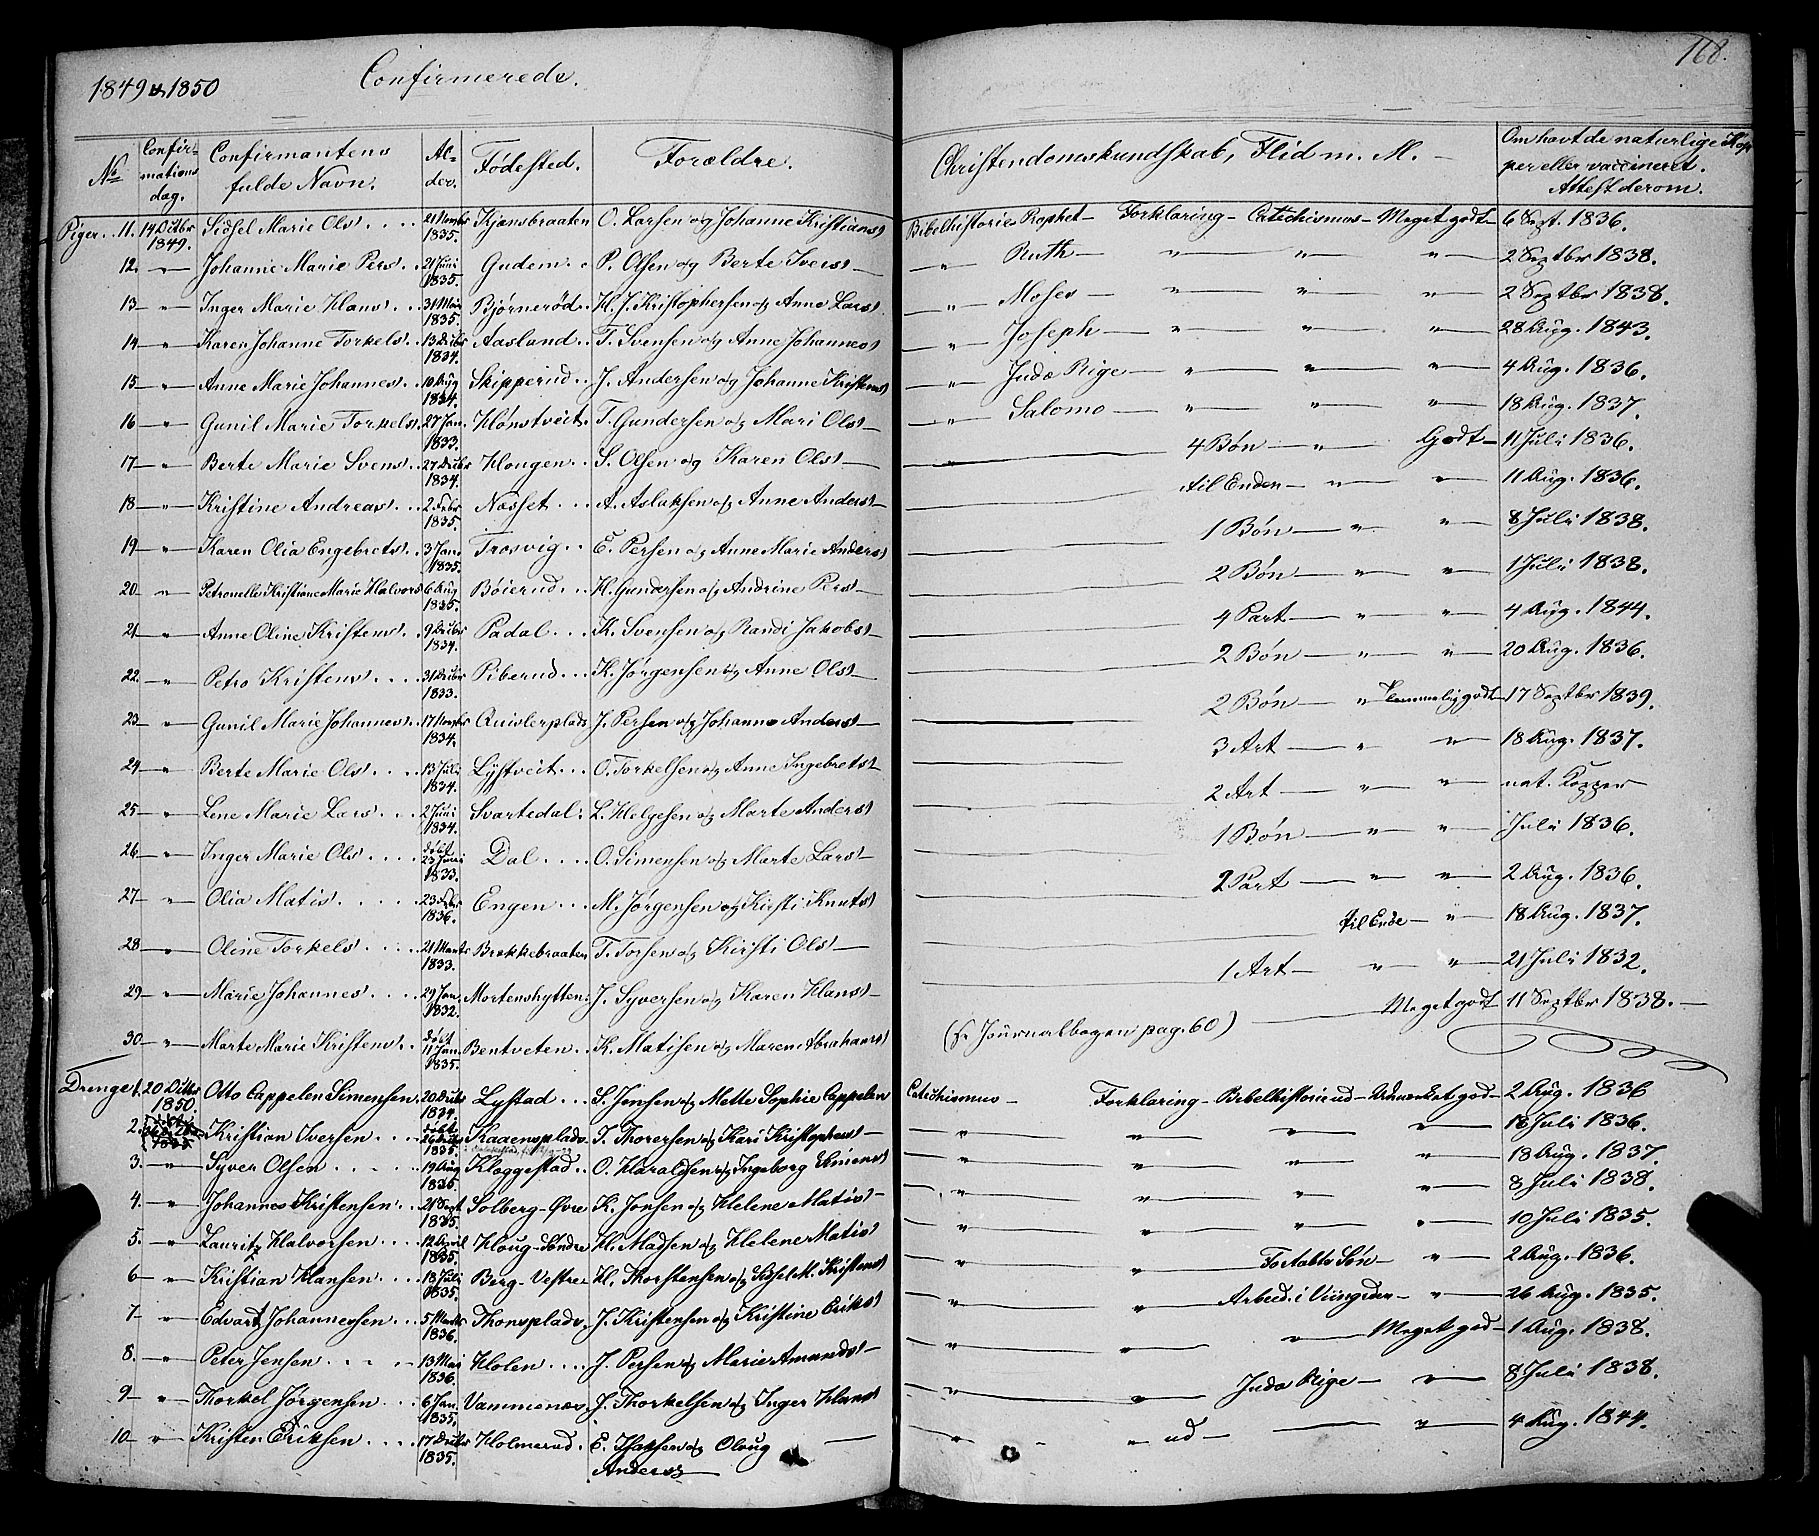 1849 & 1850 Confirmerede. 168.
No. Confirmations dag. Confirmantens fulde Navn. Alder. Fødested. Forældre. Christendomskundskab, Flid m. M. Om havt de naturlige Kopper eller vaccineret. Attest derom.
Piger 11. 14 Octbr 1849. Sidsel Marie Ols 21 Novbr 1835. Kjønsbraaten O. Larsen og Johanne Kristians Bibelhistorie Prophet Forklaring Catechismus Meget godt 6 Sept. 1836.
12. " Johanne Marie Pers 21 Juni 1835. Gudem P. Olsen og Berte Ivers " Ruth " " " 2 Septbr 1838.
13 " Inger Marie Hans 31 Mai 1835. Bjørnerød H. J. Kristophersen og Anne Lars " Moses " " " 2 Septbr 1838.
14 " Karen Johanne Torkels 13 Decbr 1834. Aasland T. Svensen og Anne Johannes " Joseph " " " 28 Aug. 1843.
15 " Anne Marie Johannes 10 Aug 1834. Skipperud J. Andersen og Johanne Kristens " Juda Rige " " " 4 Aug. 1836.
16 " Gunil Marie Torkels 27 Jan. 1833. Hønstveit T. Gundersen og Mari Ols " Salomo " " " 18 Aug. 1837.
17 " Berte Marie Svens 27 Decbr 1834. Hougen S. Olsen og Karen Ols " 4 Bøn " Godt 11 Juli 1836.
18 " Kristine Andreas 2 Febr 1835. Næsset A. Aslaksen og Anne Anders til Enden " " 11 Aug. 1836.
19 " Karen Olia Engebrets 3 Jan. 1835. Trosvig E. Persen og Anne Marie Anders 1 Bøn " " 8 Juli 1838.
20 " Petronelle Kristiane Marie Halvors 6 Aug 1835. Bøierud H. Gundersen og Andrine Pers 2 Bøn " " 1 Juli 1838.
21 " Anne Oline Kristens 9 Decbr 1834. Padal K. Svensen og Randi Jakobs 4 Part " " 4 Aug. 1844.
22 " Petro Kristens 31 Decbr 1833. Piberud K. Jørgensen og Anne Ols 2 Bøn " " 20 Aug. 1836.
23 " Gunil Marie Johannes 17 Novbr 1834. Quislerplads J. Persen og Johanne Anders 2 Bøn " Temmelig godt 17 Septbr 1839.
24 " Berte Marie Ols 13 Juli 1834. Lystveit O. Torkelsen og Anne Ingebrets 3 Art " " 18 Aug. 1837.
25 " Lene Marie Lars 2 Juni 1834. Svartedal L. Helgesen og Marte Anders 2 Art " " nat. Kopper
26 " Inger Marie Ols døbt 23 Juni 1833. Dal O. Simensen og Marte Lars 1 Bøn " " Juli 1836.
27 " Olia Matis 23 Febr 1836. Engen M. Jørgensen og Kirsti Knuts 2 Part " " 2 Aug. 1836.
28 " Oline Torkels 21 Marts 1833. Brekkebraaten T. Torsen og Kirsti Ols til Ende " 18 Aug. 1837.
29 " Marie Johannes 29 Jan. 1832. Mortenshytten J. Syversen og Karen Hans 1 Art " " 21 Juli 1832.
30 " Marte Marie Kristens døbt 11 Jan. 1835. Bentveten K. Matisen og Maren Abrahams (se Journalbogen pag. 60) Meget godt 11 Septbr 1838.
Drenge 1. 20 Octbr 1850. Otto Cappelen Simensen 20 Decbr 1834. Lystad S. Jensen og Mette Sophie Cappelen Catechismus Forklaring Bibelhistorie ud Udmærket god 2 Aug. 1836
2. Kristian Iversen døbt 1835. Kaaensplads I. Thorersen og Kari Kristophers " " " " 18 Juli 1836.
3. " Syver Olsen 19 Aug 1835. Kloggestad O. Haraldsen og Ingeborg Simens " " " " 18 Aug. 1837.
4. " Johannes Kristensen 21 Sept 1835. Solberg-Øvre K. Jonsen og Helene Matis " " " " 8 Juli 1838.
5. " Lauritz Halvorsen 12 April 1835. Houg-Søndre H. Madsen og Helene Matis " " " " 10 Juli 1835.
6 " Kristian Hansen 18 Juli 1835. Berg-Vestre H. Thorstensen og Sidsel M. Kristens " " Fortabte Søn " 2 Aug. 1836.
7 " Edvart Johannessen 5 Marts 1836. Thonsplads J. Kristensen og Kristine Eriks " " Arbeid. i Viingaar. " 26 Aug. 1835.
8. " Peter Jensen 13 Mai 1836. Holen J. Persen og Marie Amunds " " " Meget god 1 Aug. 1838.
9 " Thorkel Jørgensen 6 Jan. 1835. Vammenæs J. Thorkelsen og Inger Hans " " Juda Rige " 8 Juli 1838.
10 " Kristen Eriksen 17 Decbr 1835. Holmerud E. Isaksen og Oloug " " ud " 4 Aug. 1844.
Anders